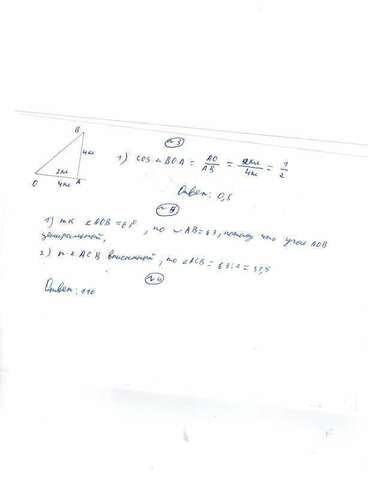 B
4кл
2кл
O 4кл A
№3
1) cos∠BOA = AO/AB = 2кл/4кл = 1/2
Ответ: 0,5
1) т.к ∠AOB = 63°, то ◡AB = 63, потому что угол AOB
центральный,
2) т.к ACB вписанный, то ∠ACB = 63:2 = 31,5
№4
Ответ: 110